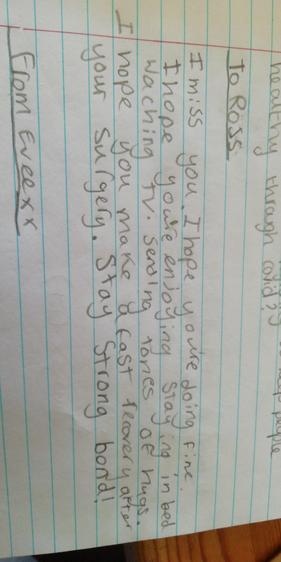 keep people
healthy through covid?
To Ross
I miss you. I hope you're doing fine.
I hope you're enjoying staying in bed
waching TV. Sending tones of hugs.
I hope you make a fast recovery after
your surgery. Stay strong bond!
From Eveexx